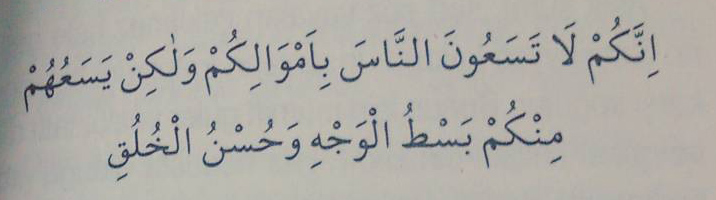 اِنَّكُمْ لَا تَسَعُونَ النَّاسَ بِاَمْوَالِكُمْ وَلٰكِنْ يَسَعُهُمْ
مِنْكُمْ بَسْطُ الْوَجْهِ وَحُسْنُ الْخُلُقِ